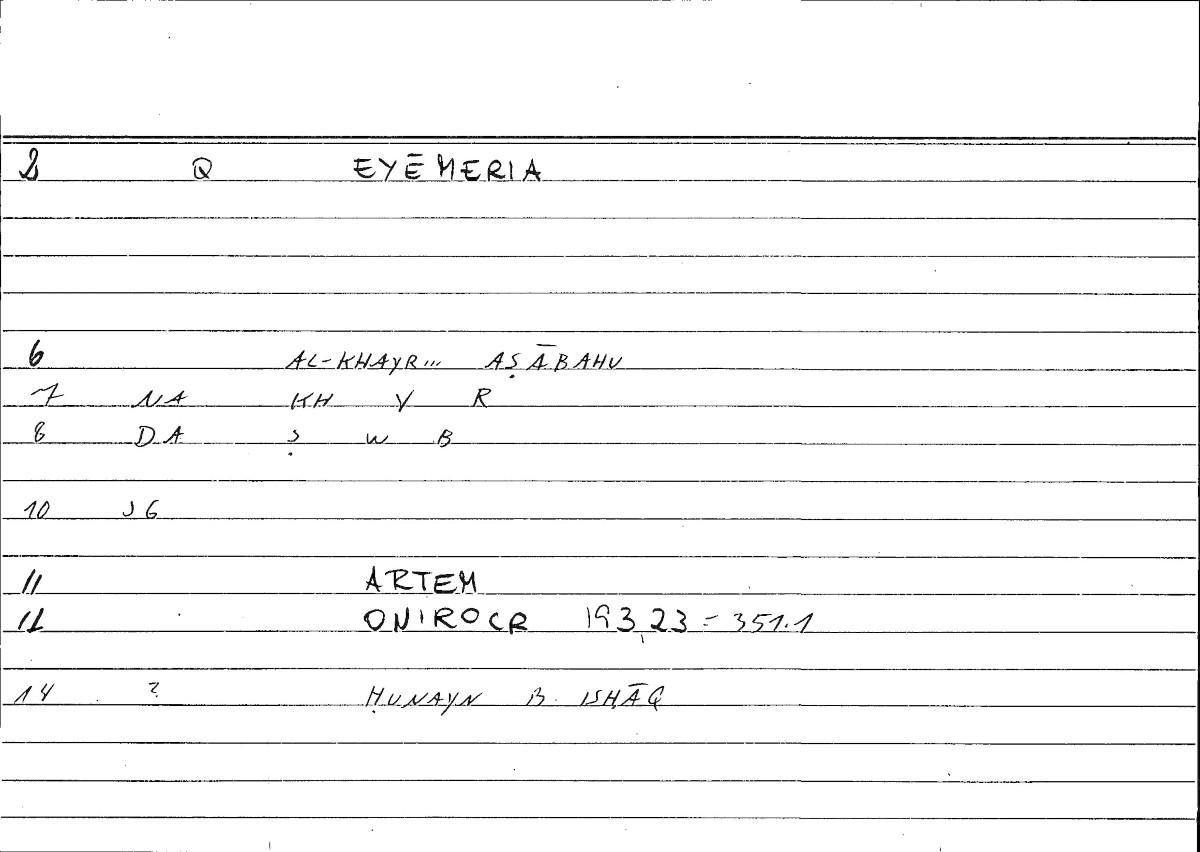 2 Q EYĒMERIA
6 AL-KHAYR... AṢĀBAHU
7 NA KH Y R
8 DA Ṣ W B
10 JG
11 ARTEM
12 ONIROCR 193,23 = 351.1
14 ? ḤUNAYN B. ISḤĀQ